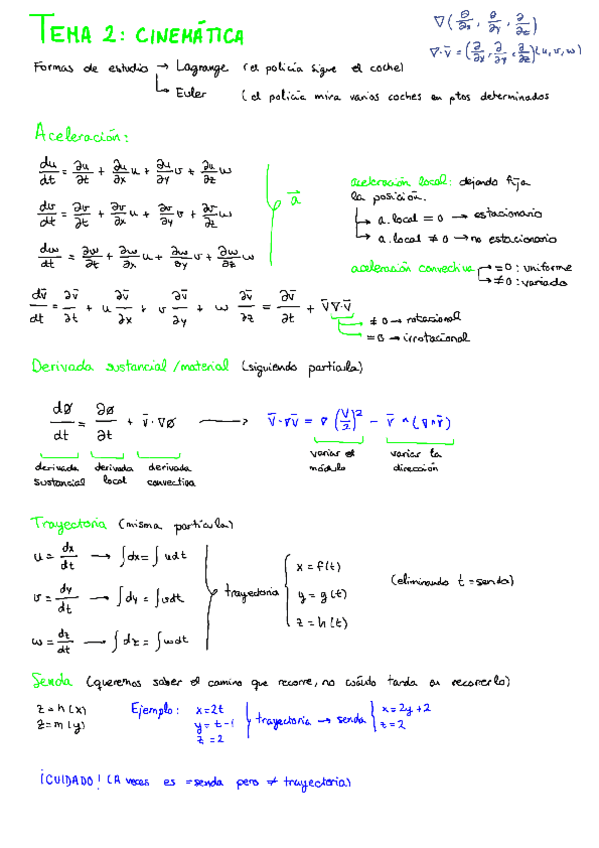 TEMA 2: CINEMÁTICA
∇(∂/∂x, ∂/∂y, ∂/∂z)
∇·v̄ = (∂/∂x, ∂/∂y, ∂/∂z)(u, v, w)
Formas de estudio → Lagrange (el policía sigue el coche)
↳ Euler (el policía mira varios coches en ptos determinados
Aceleración:
du/dt = ∂u/∂t + ∂u/∂x u + ∂u/∂y v + ∂u/∂z w
dv/dt = ∂v/∂t + ∂v/∂x u + ∂v/∂y v + ∂v/∂z w
dw/dt = ∂w/∂t + ∂w/∂x u + ∂w/∂y v + ∂w/∂z w
a⃗
aceleración local: dejando fija
la posición.
↳ a.local = 0 → estacionario
↳ a.local ≠ 0 → no estacionario
aceleración convectiva → =0 : uniforme
→ ≠0 : variado
dv̄/dt = ∂v̄/∂t + u ∂v̄/∂x + v ∂v̄/∂y + w ∂v̄/∂z = ∂v̄/∂t + v̄∇·v̄
≠ 0 → rotacional
= 0 → irrotacional
Derivada sustancial/material (siguiendo partícula)
dø/dt = ∂ø/∂t + v̄·∇ø → v̄·∇v̄ = ∇(v/2)² - v̄ ^ (∇^v̄)
derivada sustancial
derivada local
derivada convectiva
variar el módulo
variar la dirección
Trayectoria (misma partícula)
u = dx/dt → ∫dx = ∫udt
v = dy/dt → ∫dy = ∫vdt
w = dz/dt → ∫dz = ∫wdt
trayectoria
x = f(t)
y = g(t)
z = h(t)
(eliminando t = senda)
Senda (queremos saber el camino que recorre, no cuánto tarda en recorrerlo)
z = h(x)
z = m(y)
Ejemplo: x = 2t
y = t-1
z = 2
trayectoria → senda
x = 2y + 2
z = 2
¡CUIDADO! (A veces es = senda pero ≠ trayectoria)